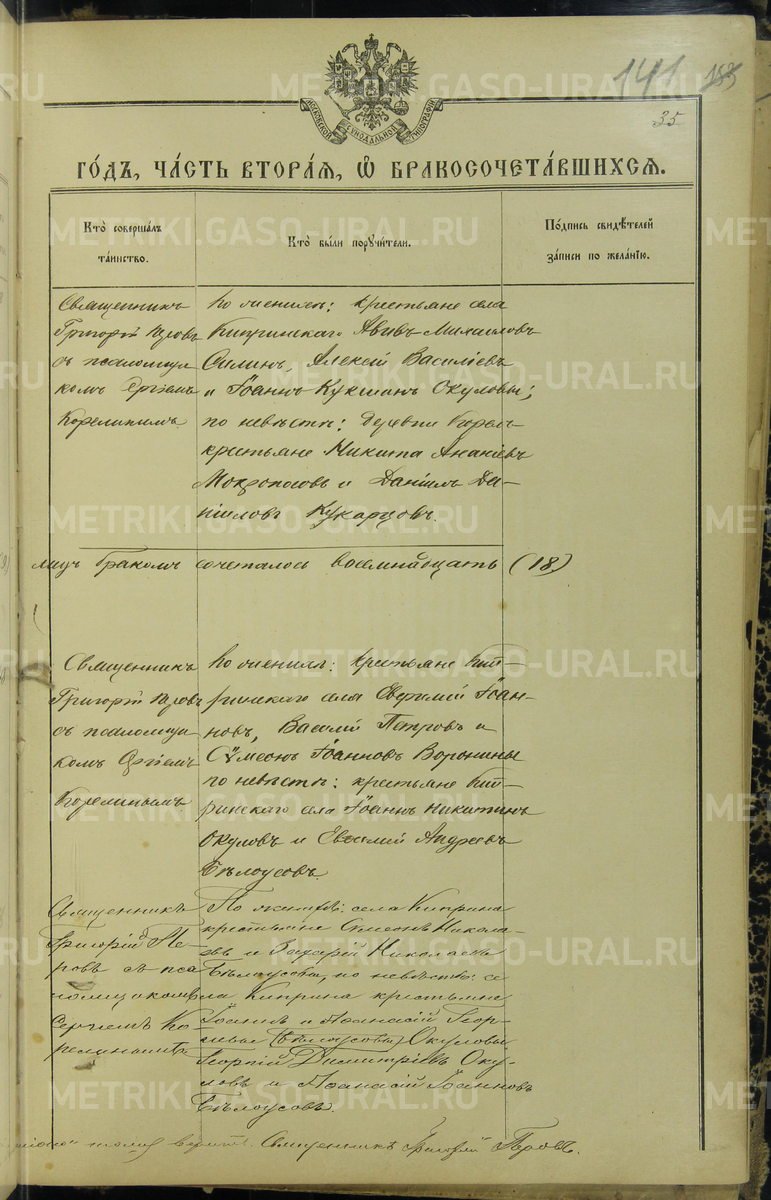 METRIKI.GASO-URAL.RU
141
185
35
МОСКОВСКОЙ СѴНОДАЛЬНОЙ ТИПОГРАФІИ
ГО́ДЪ, ЧА́СТЬ ВТОРА́Я, Ѽ БРАКОСОЧЕТА́ВШИХСЯ.
Кто̀ совершáлъ
тáинство.
Кто̀ бы́ли порꙋчи́тели.
По́дпись свидѣ́телей
зáписи по желáнїю.
Священникъ
Григорій Перовъ
съ псаломщи
комъ Сергіемъ
Корелинымъ.
По женихѣ: крестьяне села
Кипринскаго Авивъ Михаиловъ
Силинъ, Алексій Василіевъ
и Іоаннъ Кукшинъ Окуловы;
по невѣстѣ: деревни
крестьяне Никита Ананіевъ
Мокроносовъ и Даніилъ Да-
ніиловъ Кукарцовъ.
лицъ бракомъ сочеталось восемнадцать (18)
Священникъ
Григорій Перовъ
съ псаломщи
комъ Сергіемъ
Корелинымъ
По женихѣ: крестьяне Кип-
ринскаго села Евѳимій Іоан-
новъ, Василій Петровъ и
Сѵмеонъ Іоанновъ Воронины
по невѣстѣ: крестьяне Кип-
ринскаго села Іоаннъ Никитинъ
Окуловъ и Евсевій Андреевъ
Бѣлоусовъ.
Священникъ
Григорій Пе-
ровъ съ пса
ломщикомъ
Сергіемъ Ко-
релинымъ
По женихѣ: села Киприна
крестьяне Симеонъ Никола-
евъ и Захарій Николаевъ
Бѣлоусовы, по невѣстѣ: се
ла Киприна крестьяне
Іоаннъ и Аѳанасій Геор-
гіевы (Бѣлоусовы) Окуловы
Георгій Димитріевъ Оку-
ловъ и Аѳанасій Іоанновъ
Бѣлоусовъ.
вѣрить. Священникъ Григорій Перовъ.